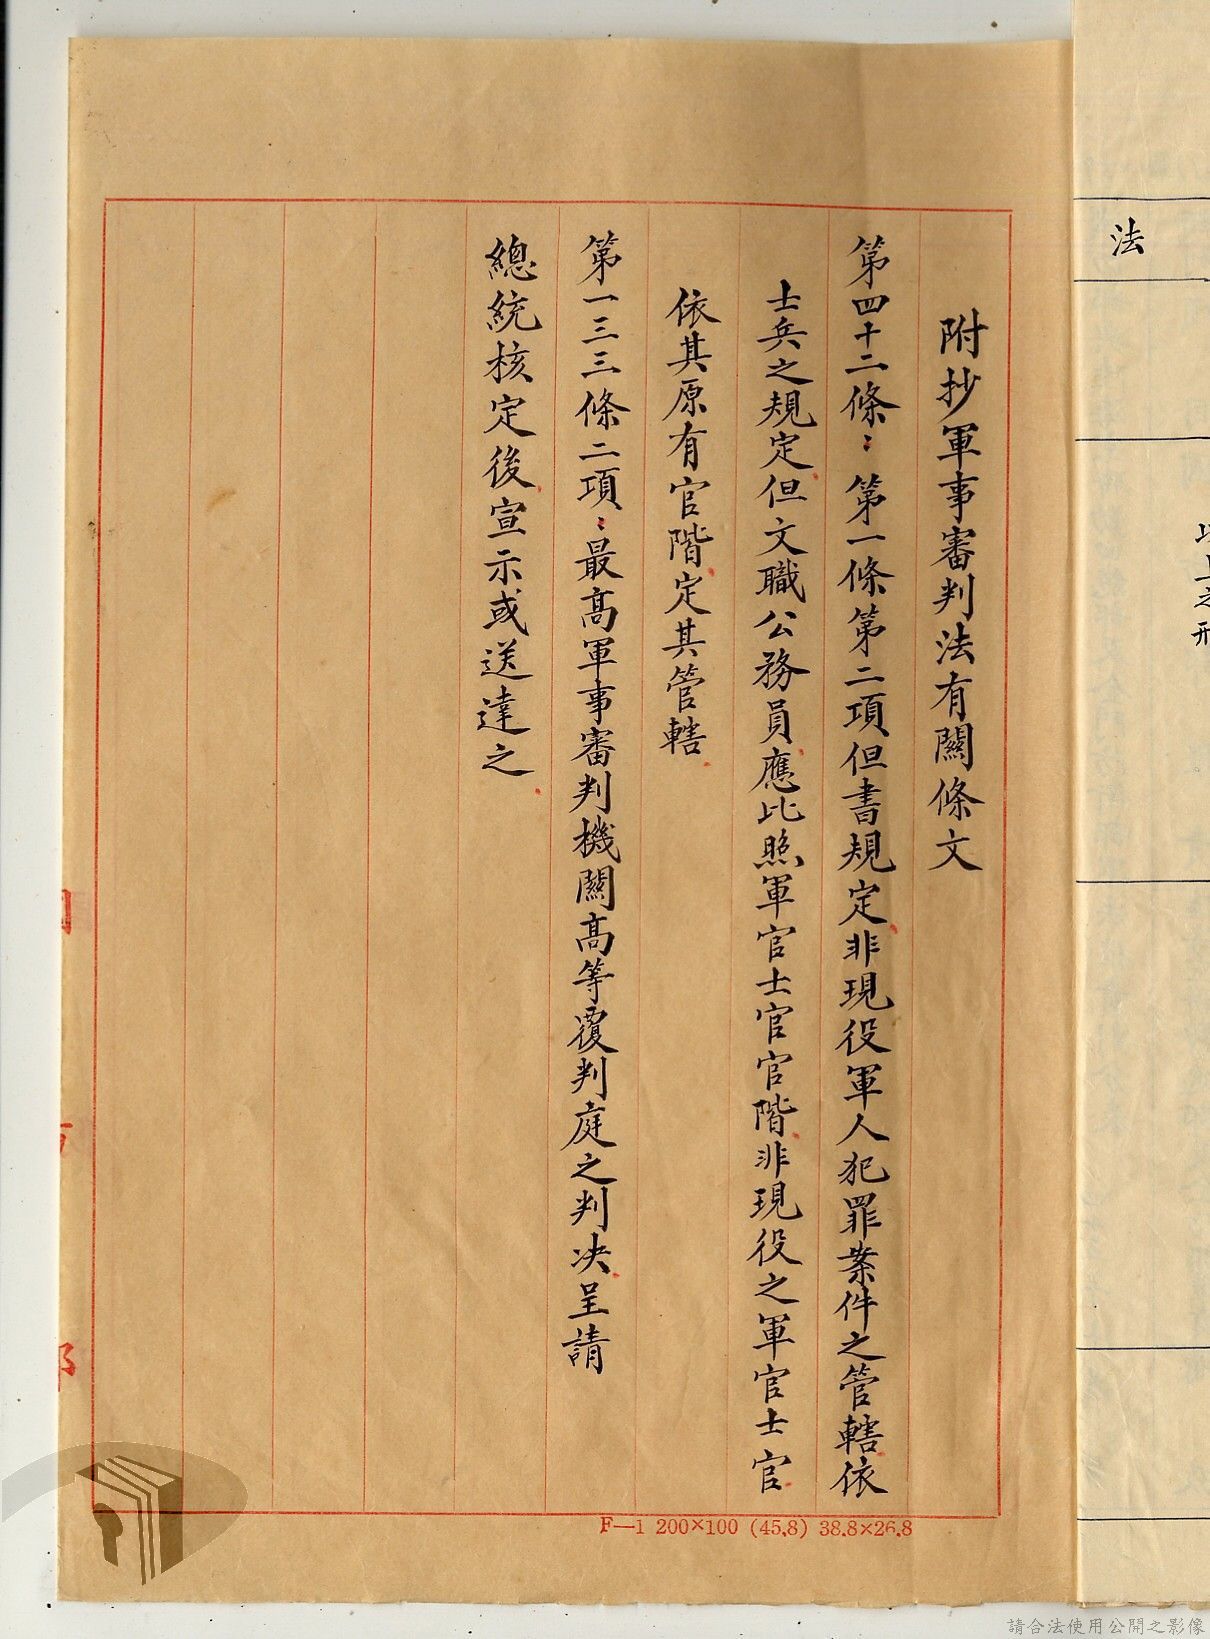 附抄軍事審判法有關條文
第四十二條：第一條第二項但書規定非現役軍人犯罪案件之管轄依
士兵之規定但文職公務員應比照軍官士官官階非現役之軍官士官
依其原有官階定其管轄
第一三三條二項：最高軍事審判機關高等覆判庭之判决呈請
總統核定後宣示或送達之
法
以上之刑
F—1 200×100 (45.8) 38.8×26.8
請合法使用公開之影像